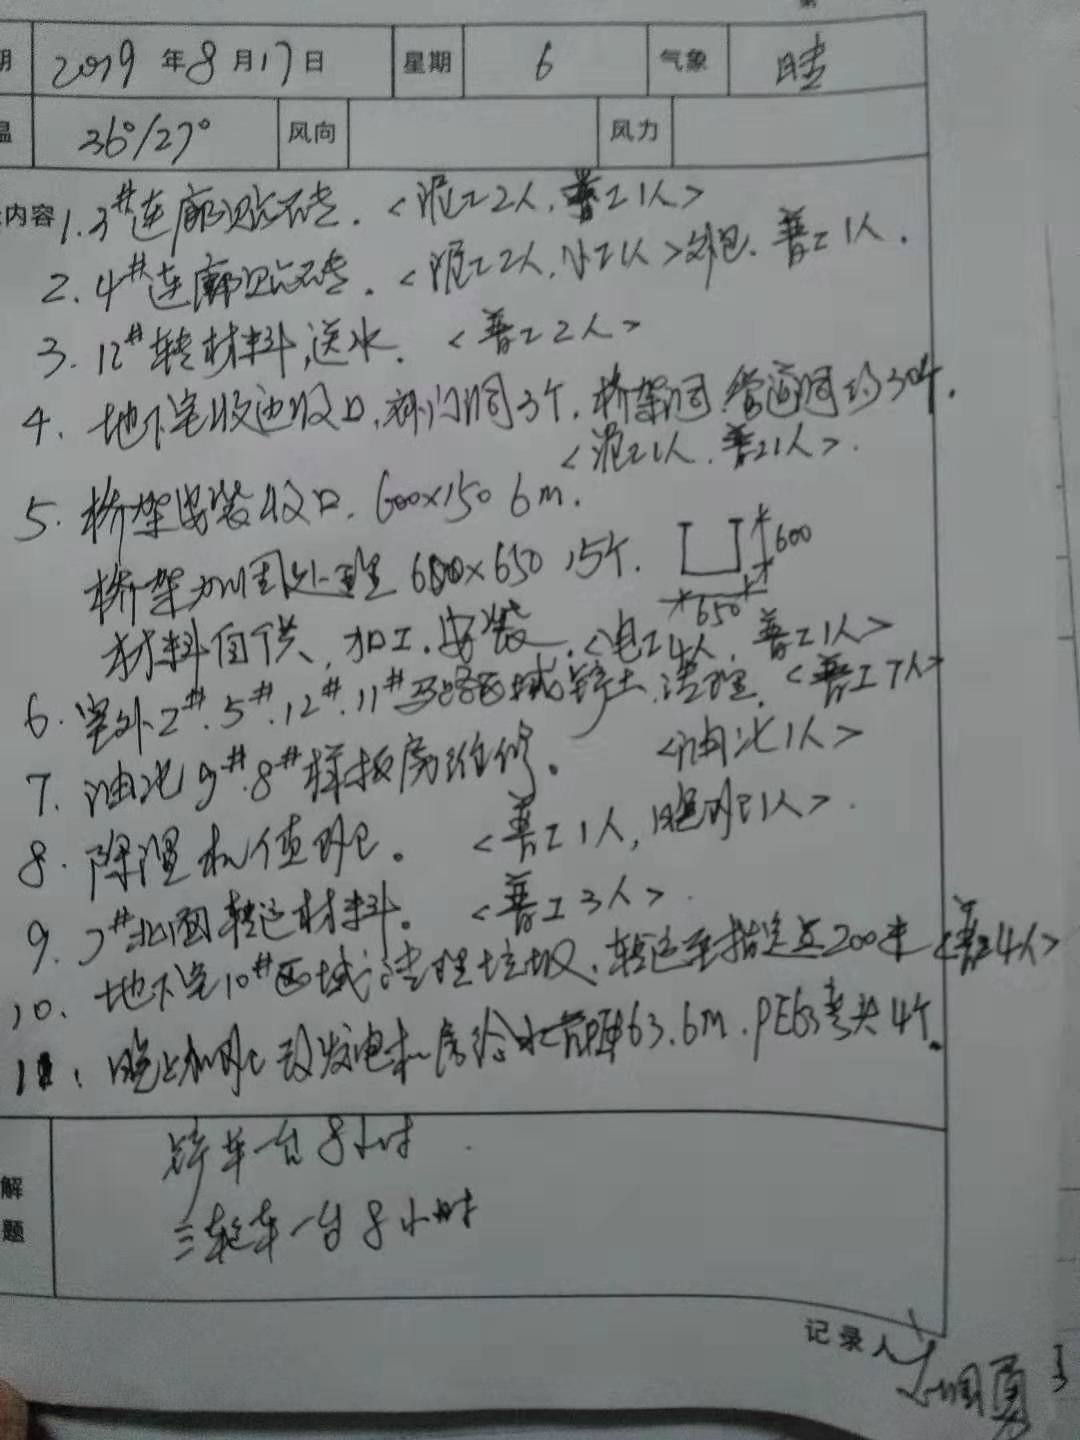 期 2019 年 8 月 17 日 星期 6 气象 晴
温 36°/27° 风向 风力
内容 1. 3#连廊贴砖. <泥工2人, 普工1人>
2. 4#连廊贴砖. <泥工2人, 小工1人> 外包. 普工1人.
3. 12#转材料,送水. <普工2人>
4. 地下室收边收口, 门洞3个, 桥架洞.管道洞约30个.
<泥工1人, 普工1人>.
5. 桥架安装收口. 600×150 6m.
桥架加固处理 600×650 15个. 600
650
材料自供, 加工. 安装. <电工4人, 普工1人>
6. 室外2#.5#.12#.11#马路区域铲土.清理. <普工7人>
7. 油漆9#.8#样板房维修。 <油漆1人>
8. 除湿机值班。 <普工1人, 晚班1人>.
9. 7#北面转运材料。 <普工3人>.
10. 地下室10#区域清理垃圾, 转运至指定点200米 <普工4人>
11. 晚上加班 发电机房给水 63.6m. PE63弯头4个.
解 铲车一台8小时
题 三轮车一台8小时
记录人